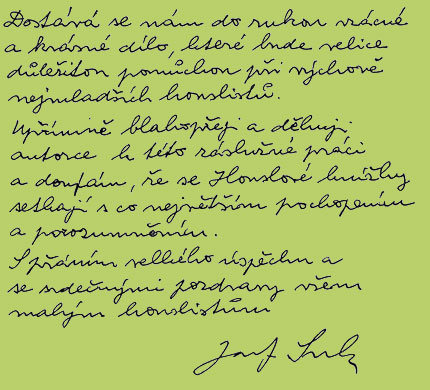 Dostává se nám do rukou vzácné
a krásné dílo, které bude velice
důležitou pomůckou při výchově
nejmladších houslistů.
Upřímně blahopřeji a děkuji
autorce k této záslužné práci
a doufám, že se Houslové knížky
setkají s co největším pochopením
a porozuměním.
S přáním velkého úspěchu a
se srdečnými pozdravy všem
malým houslistům
Josef Suk